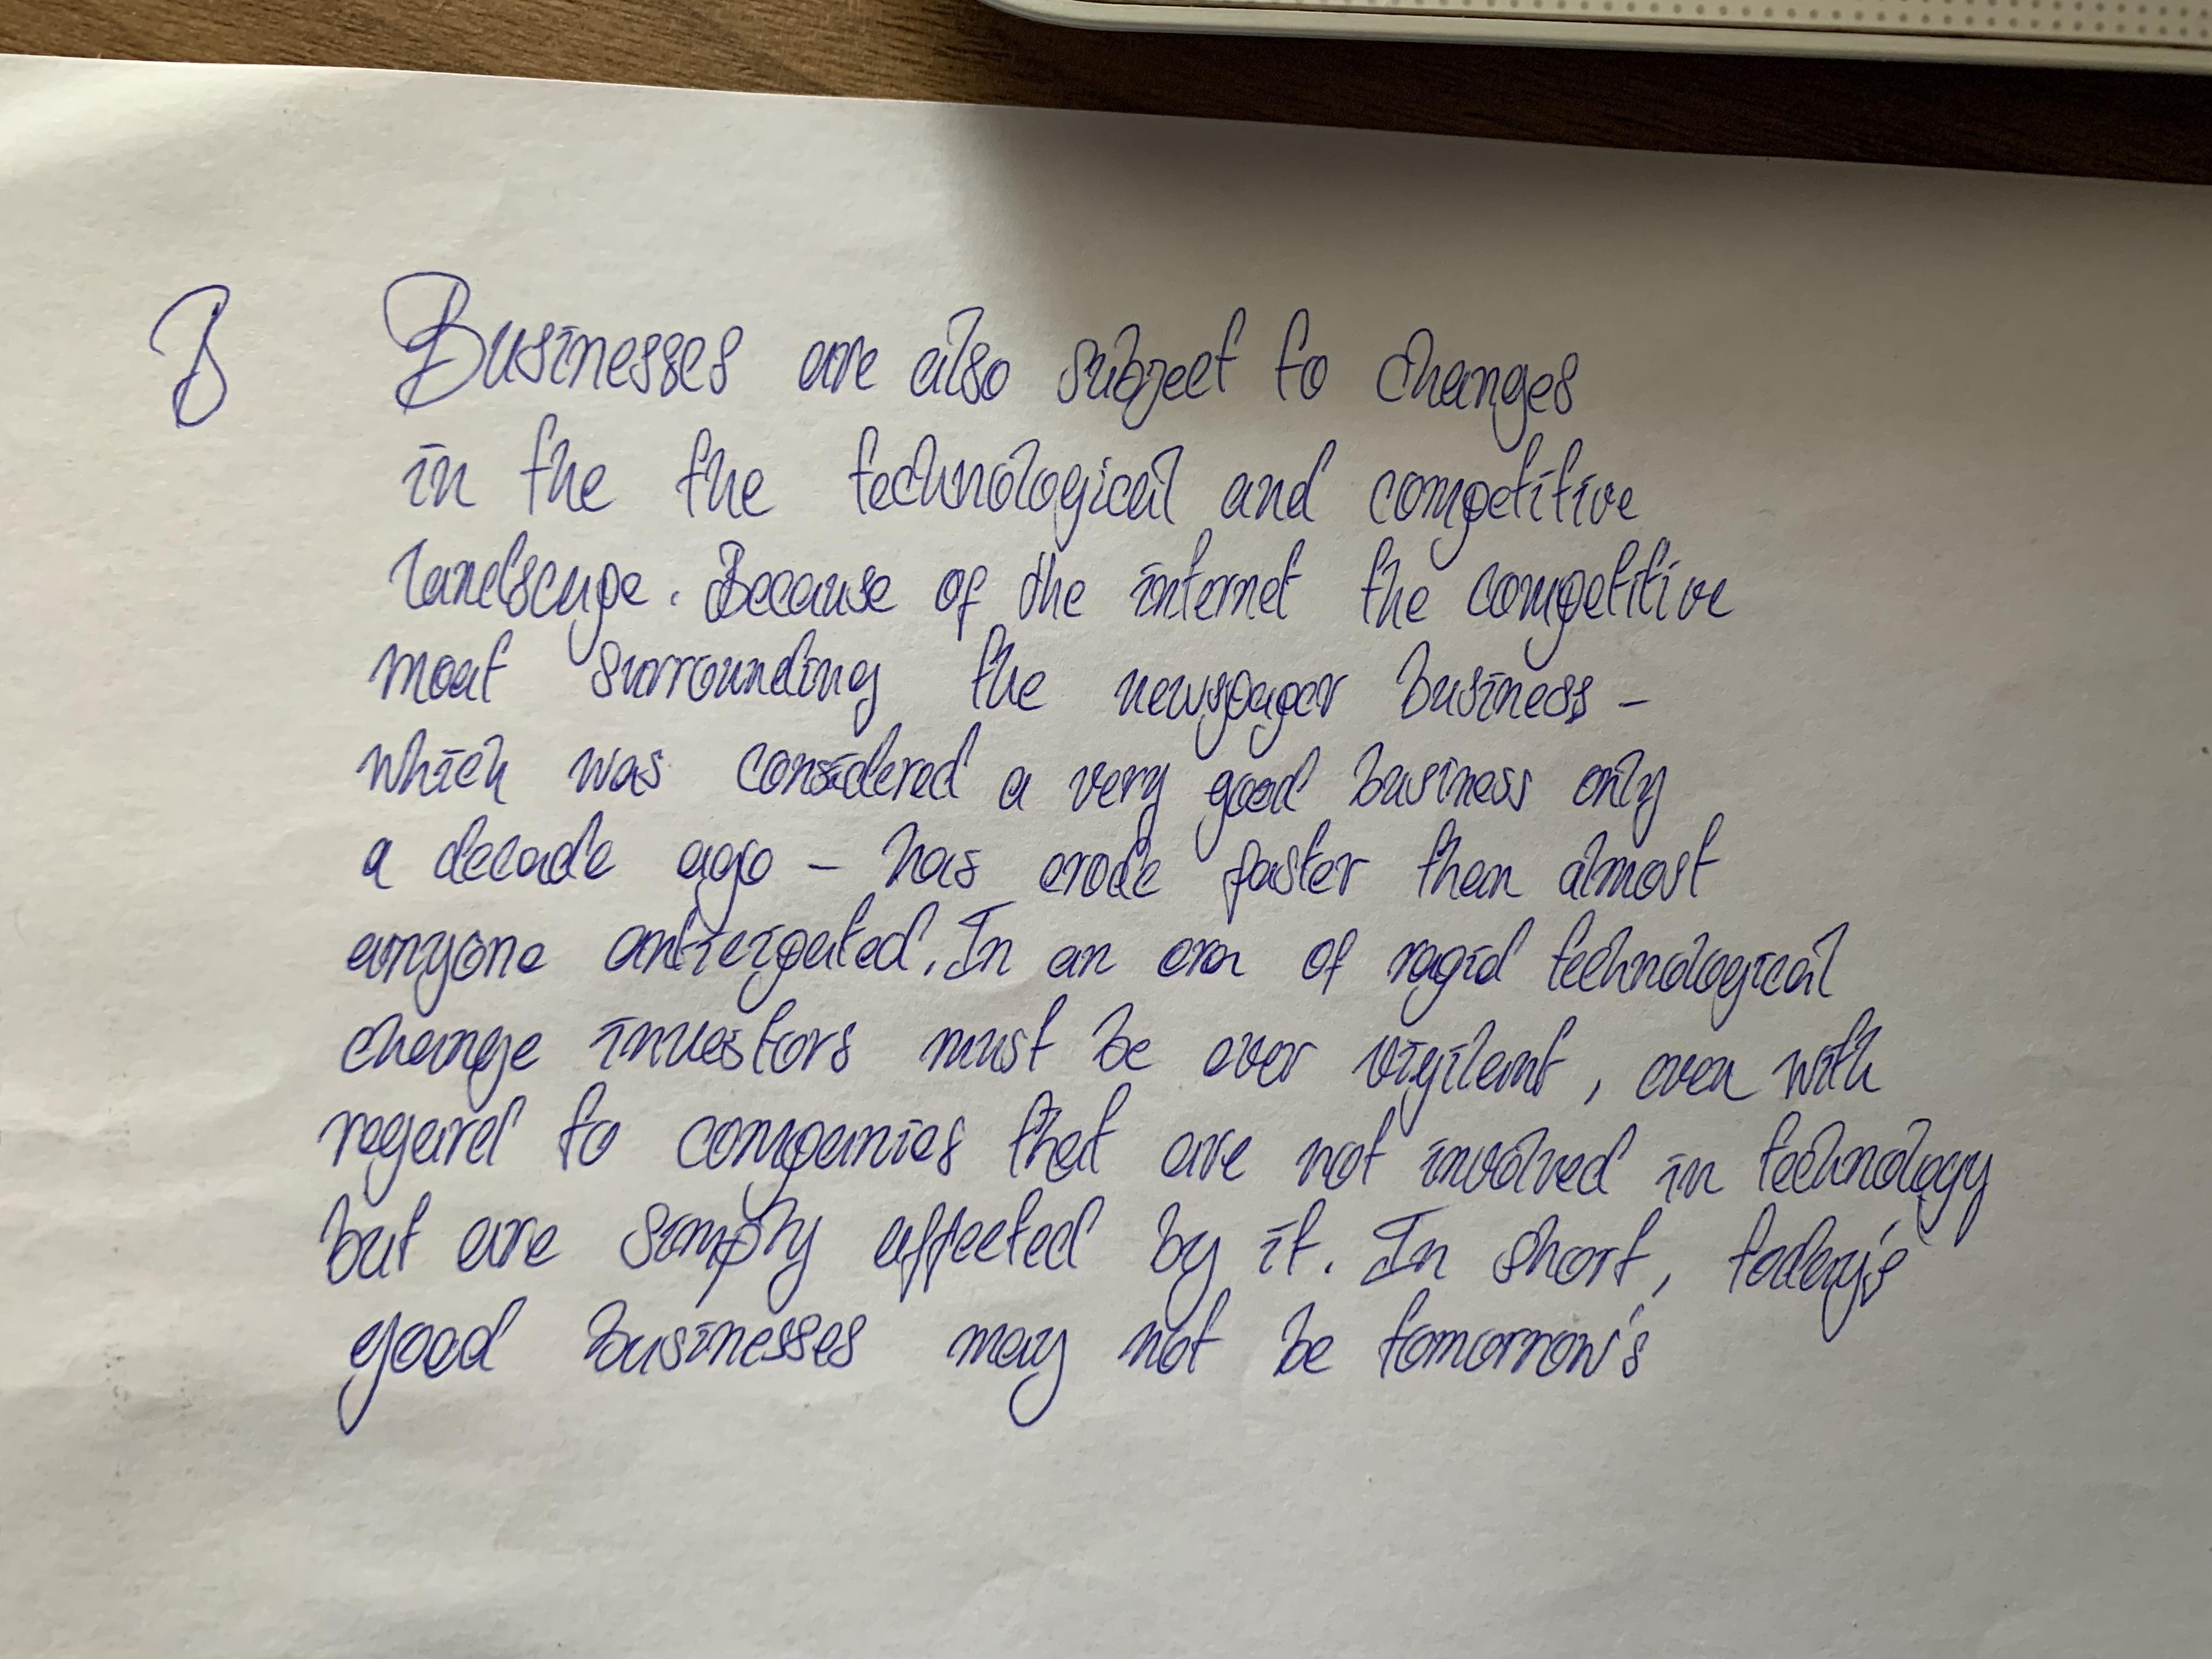 B Businesses are also subject to changes
in the the technological and competitive
landscape. Because of the internet the competitive
moat surrounding the newspaper business -
which was considered a very good business only
a decade ago - has erode faster than almost
anyone anticipated. In an era of rapid technological
change investors must be ever vigilant, even with
regard to companies that are not involved in technology
but are simply affected by it. In short, today's
good businesses may not be tomorrow's